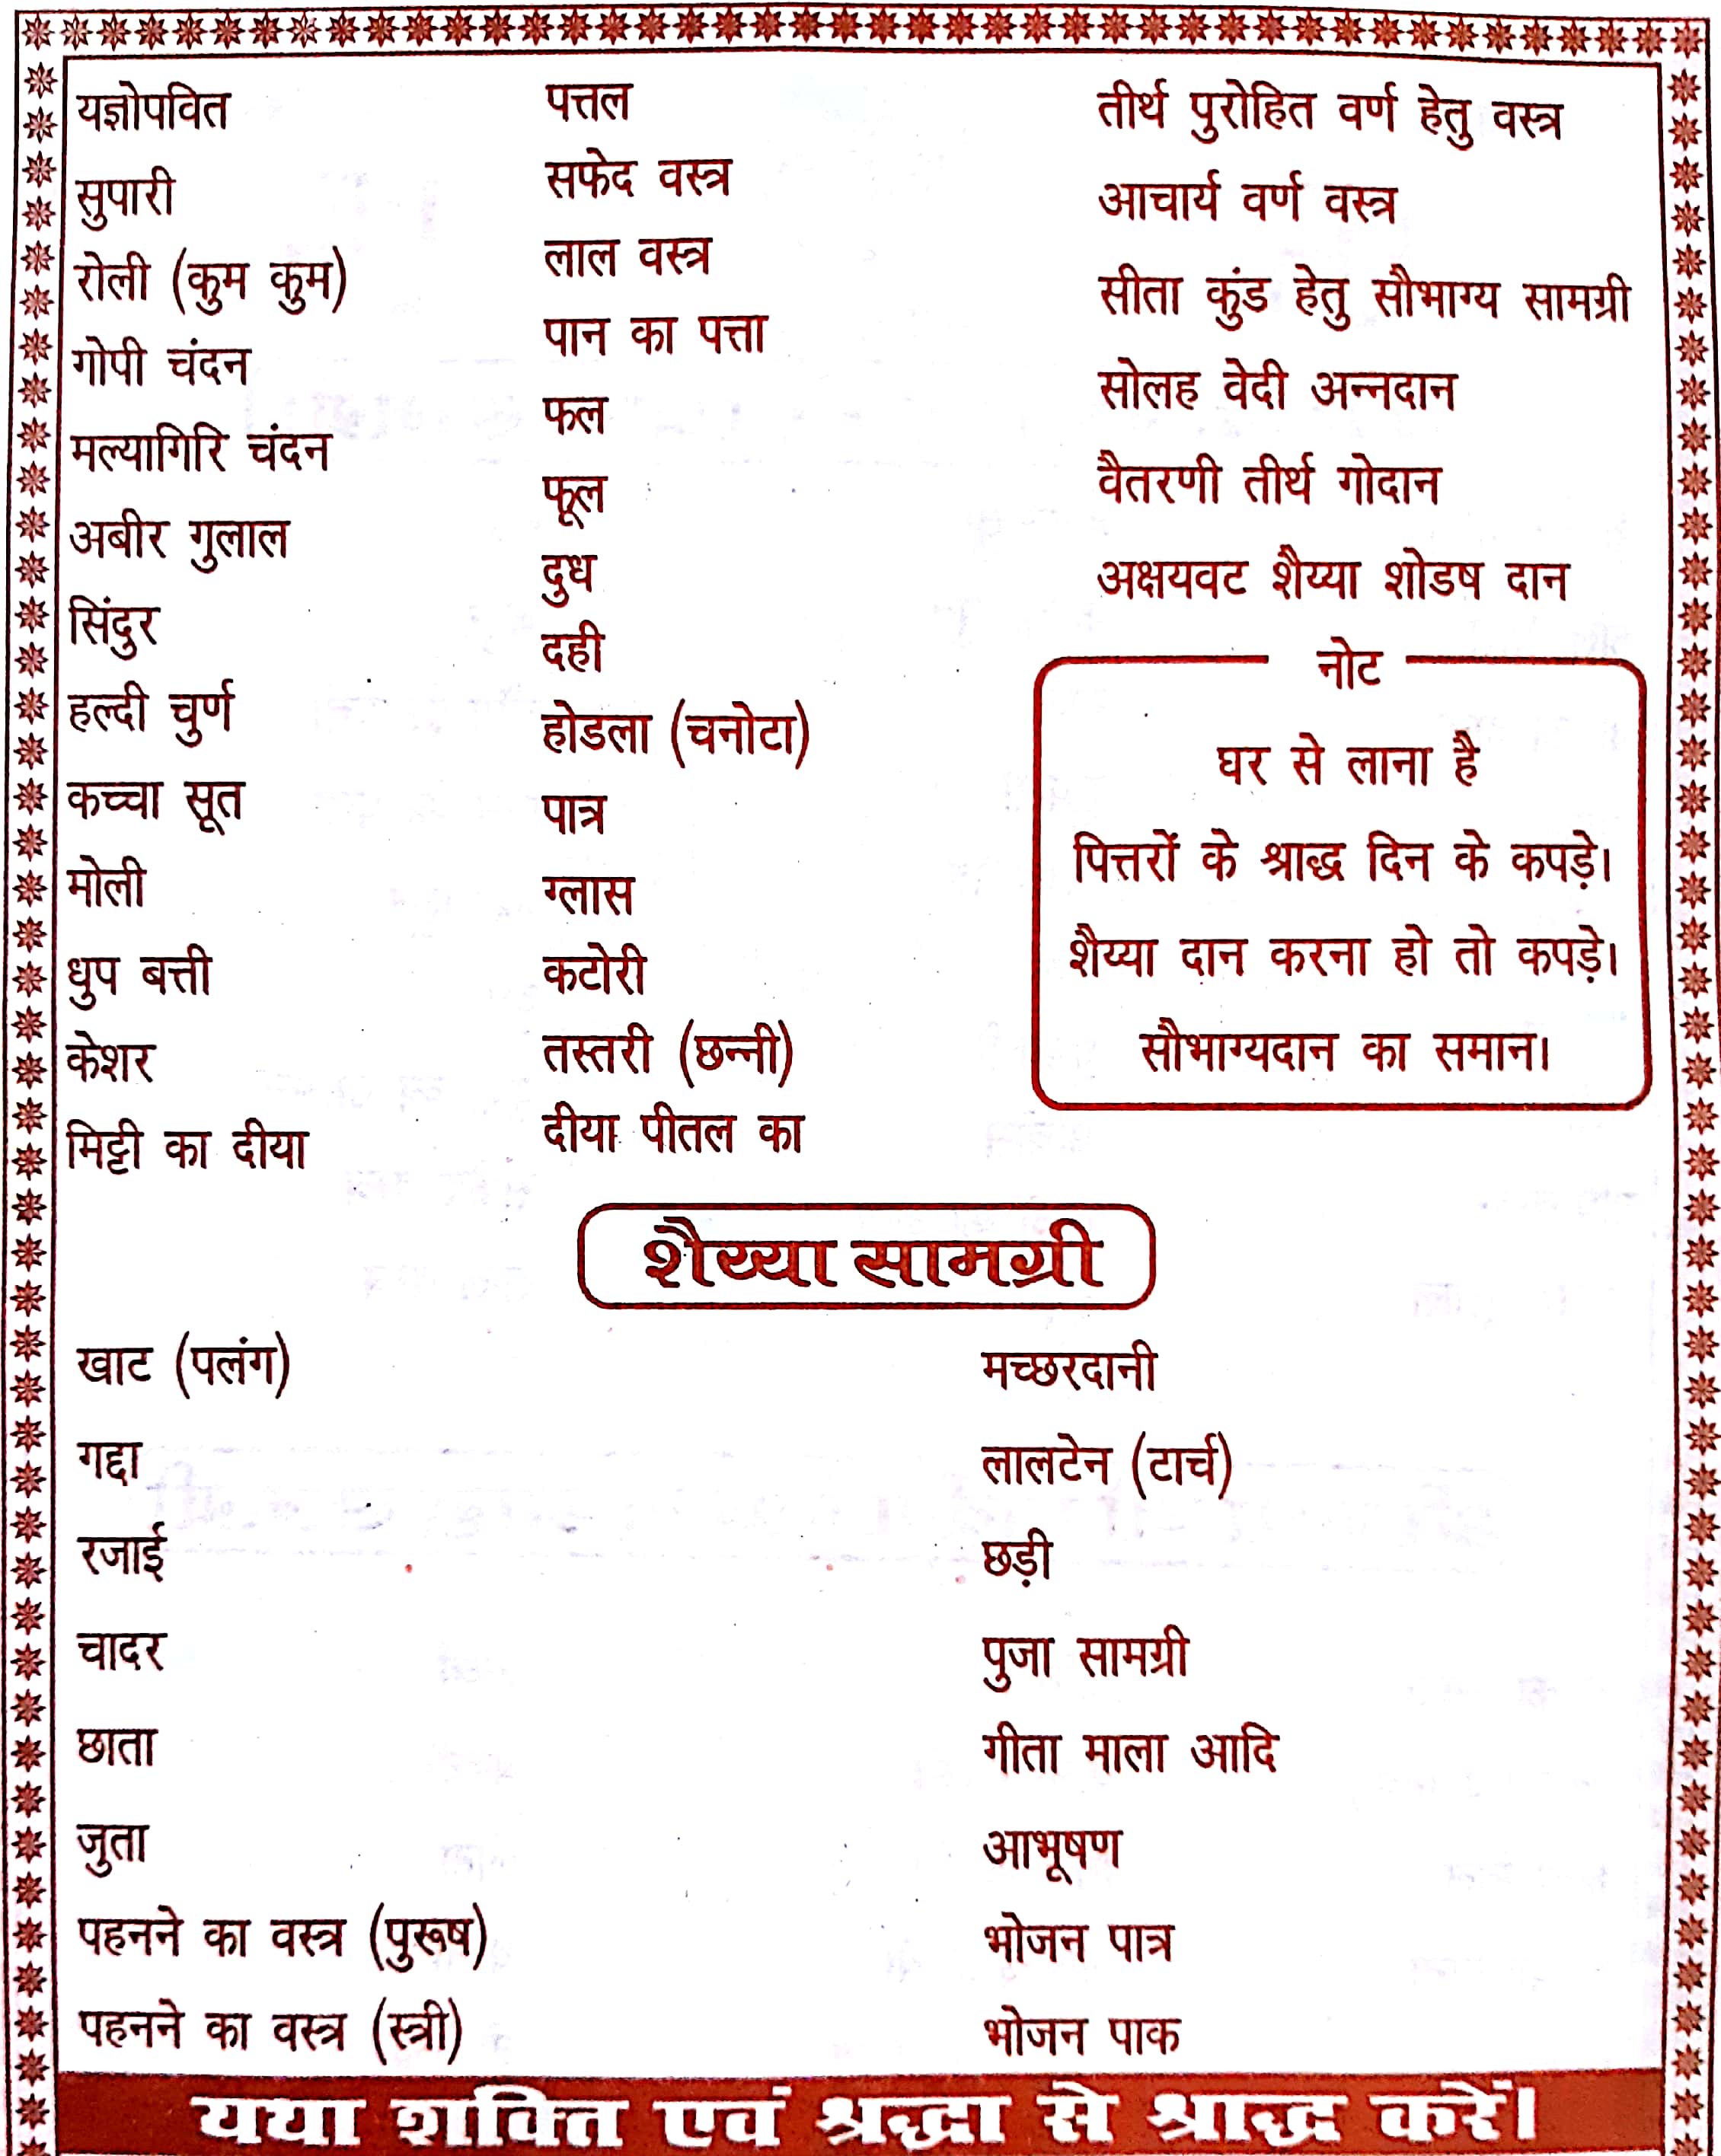 यज्ञोपवित
सुपारी
रोली (कुम कुम)
गोपी चंदन
मल्यागिरि चंदन
अबीर गुलाल
सिंदुर
हल्दी चुर्ण
कच्चा सूत
मोली
धुप बत्ती
केशर
मिट्टी का दीया
पत्तल
सफेद वस्त्र
लाल वस्त्र
पान का पत्ता
फल
फूल
दुध
दही
होडला (चनोटा)
पात्र
ग्लास
कटोरी
तस्तरी (छन्नी)
दीया पीतल का
तीर्थ पुरोहित वर्ण हेतु वस्त्र
आचार्य वर्ण वस्त्र
सीता कुंड हेतु सौभाग्य सामग्री
सोलह वेदी अन्नदान
वैतरणी तीर्थ गोदान
अक्षयवट शैय्या शोडष दान
नोट
घर से लाना है
पित्तरों के श्राद्ध दिन के कपड़े।
शैय्या दान करना हो तो कपड़े।
सौभाग्यदान का समान।
शैय्या सामग्री
खाट (पलंग)
गद्दा
रजाई
चादर
छाता
जुता
पहनने का वस्त्र (पुरूष)
पहनने का वस्त्र (स्त्री)
मच्छरदानी
लालटेन (टार्च)
छड़ी
पुजा सामग्री
गीता माला आदि
आभूषण
भोजन पात्र
भोजन पाक
यथा शक्ति एवं श्रद्धा से श्राद्ध करें।